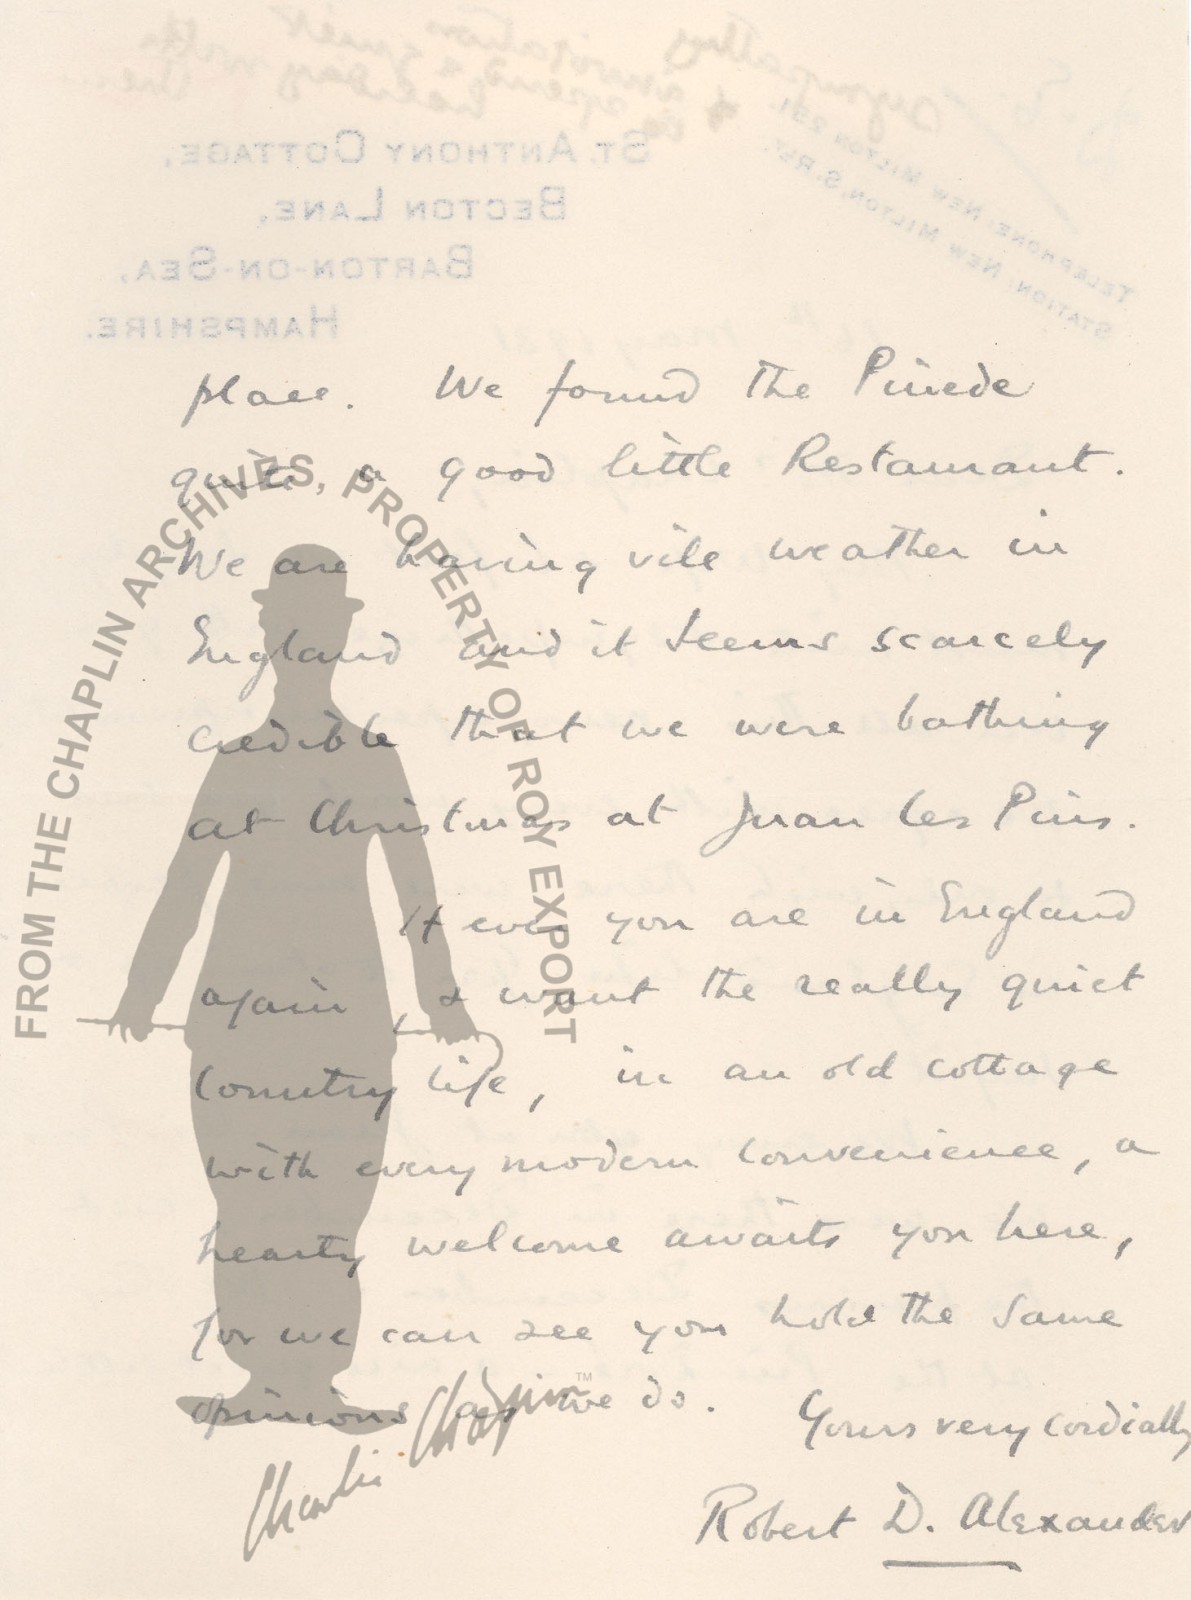 place. We found the Pinede
quite a good little Restaurant.
We are having vile weather in
England and it seems scarcely
credible that we were bathing
at Christmas at Juan les Pins.
If ever you are in England
again, & want the really quiet
Country life, in an old cottage
with every modern convenience, a
hearty welcome awaits you here,
for we can see you hold the same
opinions as we do.
Yours very cordially
Robert D. Alexander
FROM THE CHAPLIN ARCHIVES, PROPERTY OF ROY EXPORT
Charlie Chaplin™
ST. ANTHONY COTTAGE,
BECTON LANE,
BARTON-ON-SEA,
HAMPSHIRE.
TELEPHONE: NEW MILTON 291.
STATION: NEW MILTON, S.RLY.
sympathy
& invitation
to spend a quiet
holiday with
them
May 1931